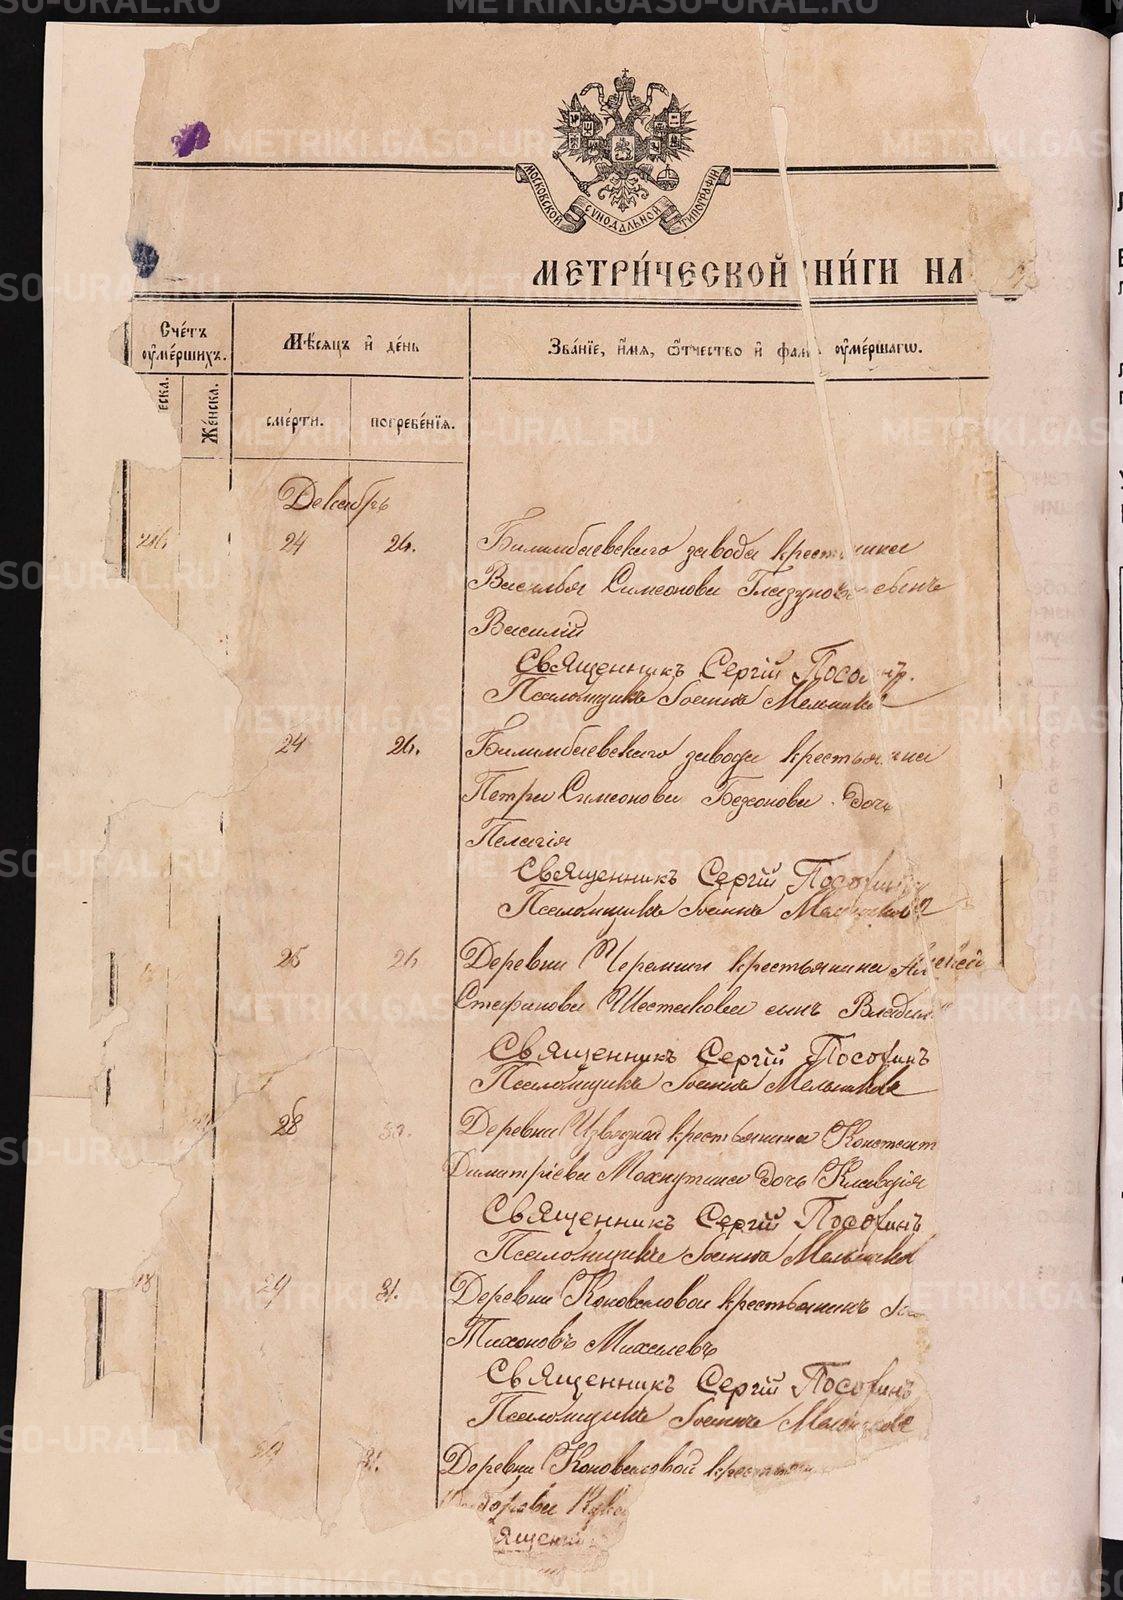 МОСКОВСКОЙ СУНОДАЛЬНОЙ ТИПОГРАФІИ
МЕТРИ́ЧЕСКОЙ НИ́ГИ НА
Сче́тъ ᲂу҆ме́ршихъ.
Мѣ́сяцъ и҆ де́нь
Зва́нїе, и҆́мя, ѻ҆́тчество и҆ фам ᲂу҆ме́ршагѡ.
еска.
Же́нска.
сме́рти.
погребе́нїя.
Декабрь
24 26. Билимбаевскаго завода крест ника
Василья Симеонова Глазунова сынъ
Василій
Священникъ Сергій
Псаломщикъ Іоаннъ Мельников
24 26. Билимбаевскаго завода крестья нина
Петра Симеонова Безсонова дочь
Пелагія
Священникъ Сергій Пососинъ
Псаломщикъ Іоаннъ Мельников
25 26 Деревни Черемши крестьянина Алексея
Стефанова Шестакова сынъ Владим
Священникъ Сергій Пососинъ
Псаломщикъ Іоаннъ Мельников
28 30. Деревни Извездной крестьянина Констант
Димитріева Махнутина дочь Клавдія
Священникъ Сергій Пососинъ
Псаломщикъ Іоаннъ Мельников
18 29 31. Деревни Коноваловой крестьянинъ
Тихоновъ Михалевъ
Священникъ Сергій Пососинъ
Псаломщикъ Іоаннъ Мельников
31. Деревни Коноваловой
ящен
METRIKI.GASO-URAL.RU